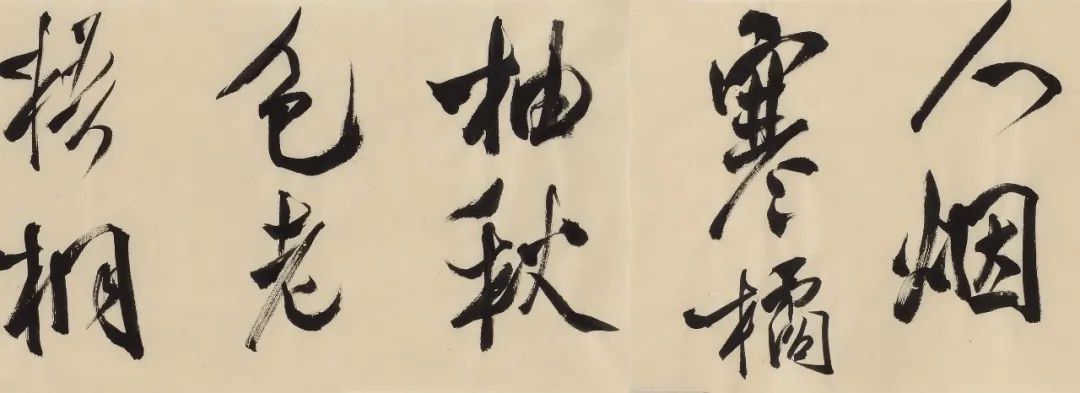 人烟
寒橘
柚秋
色老
梧桐